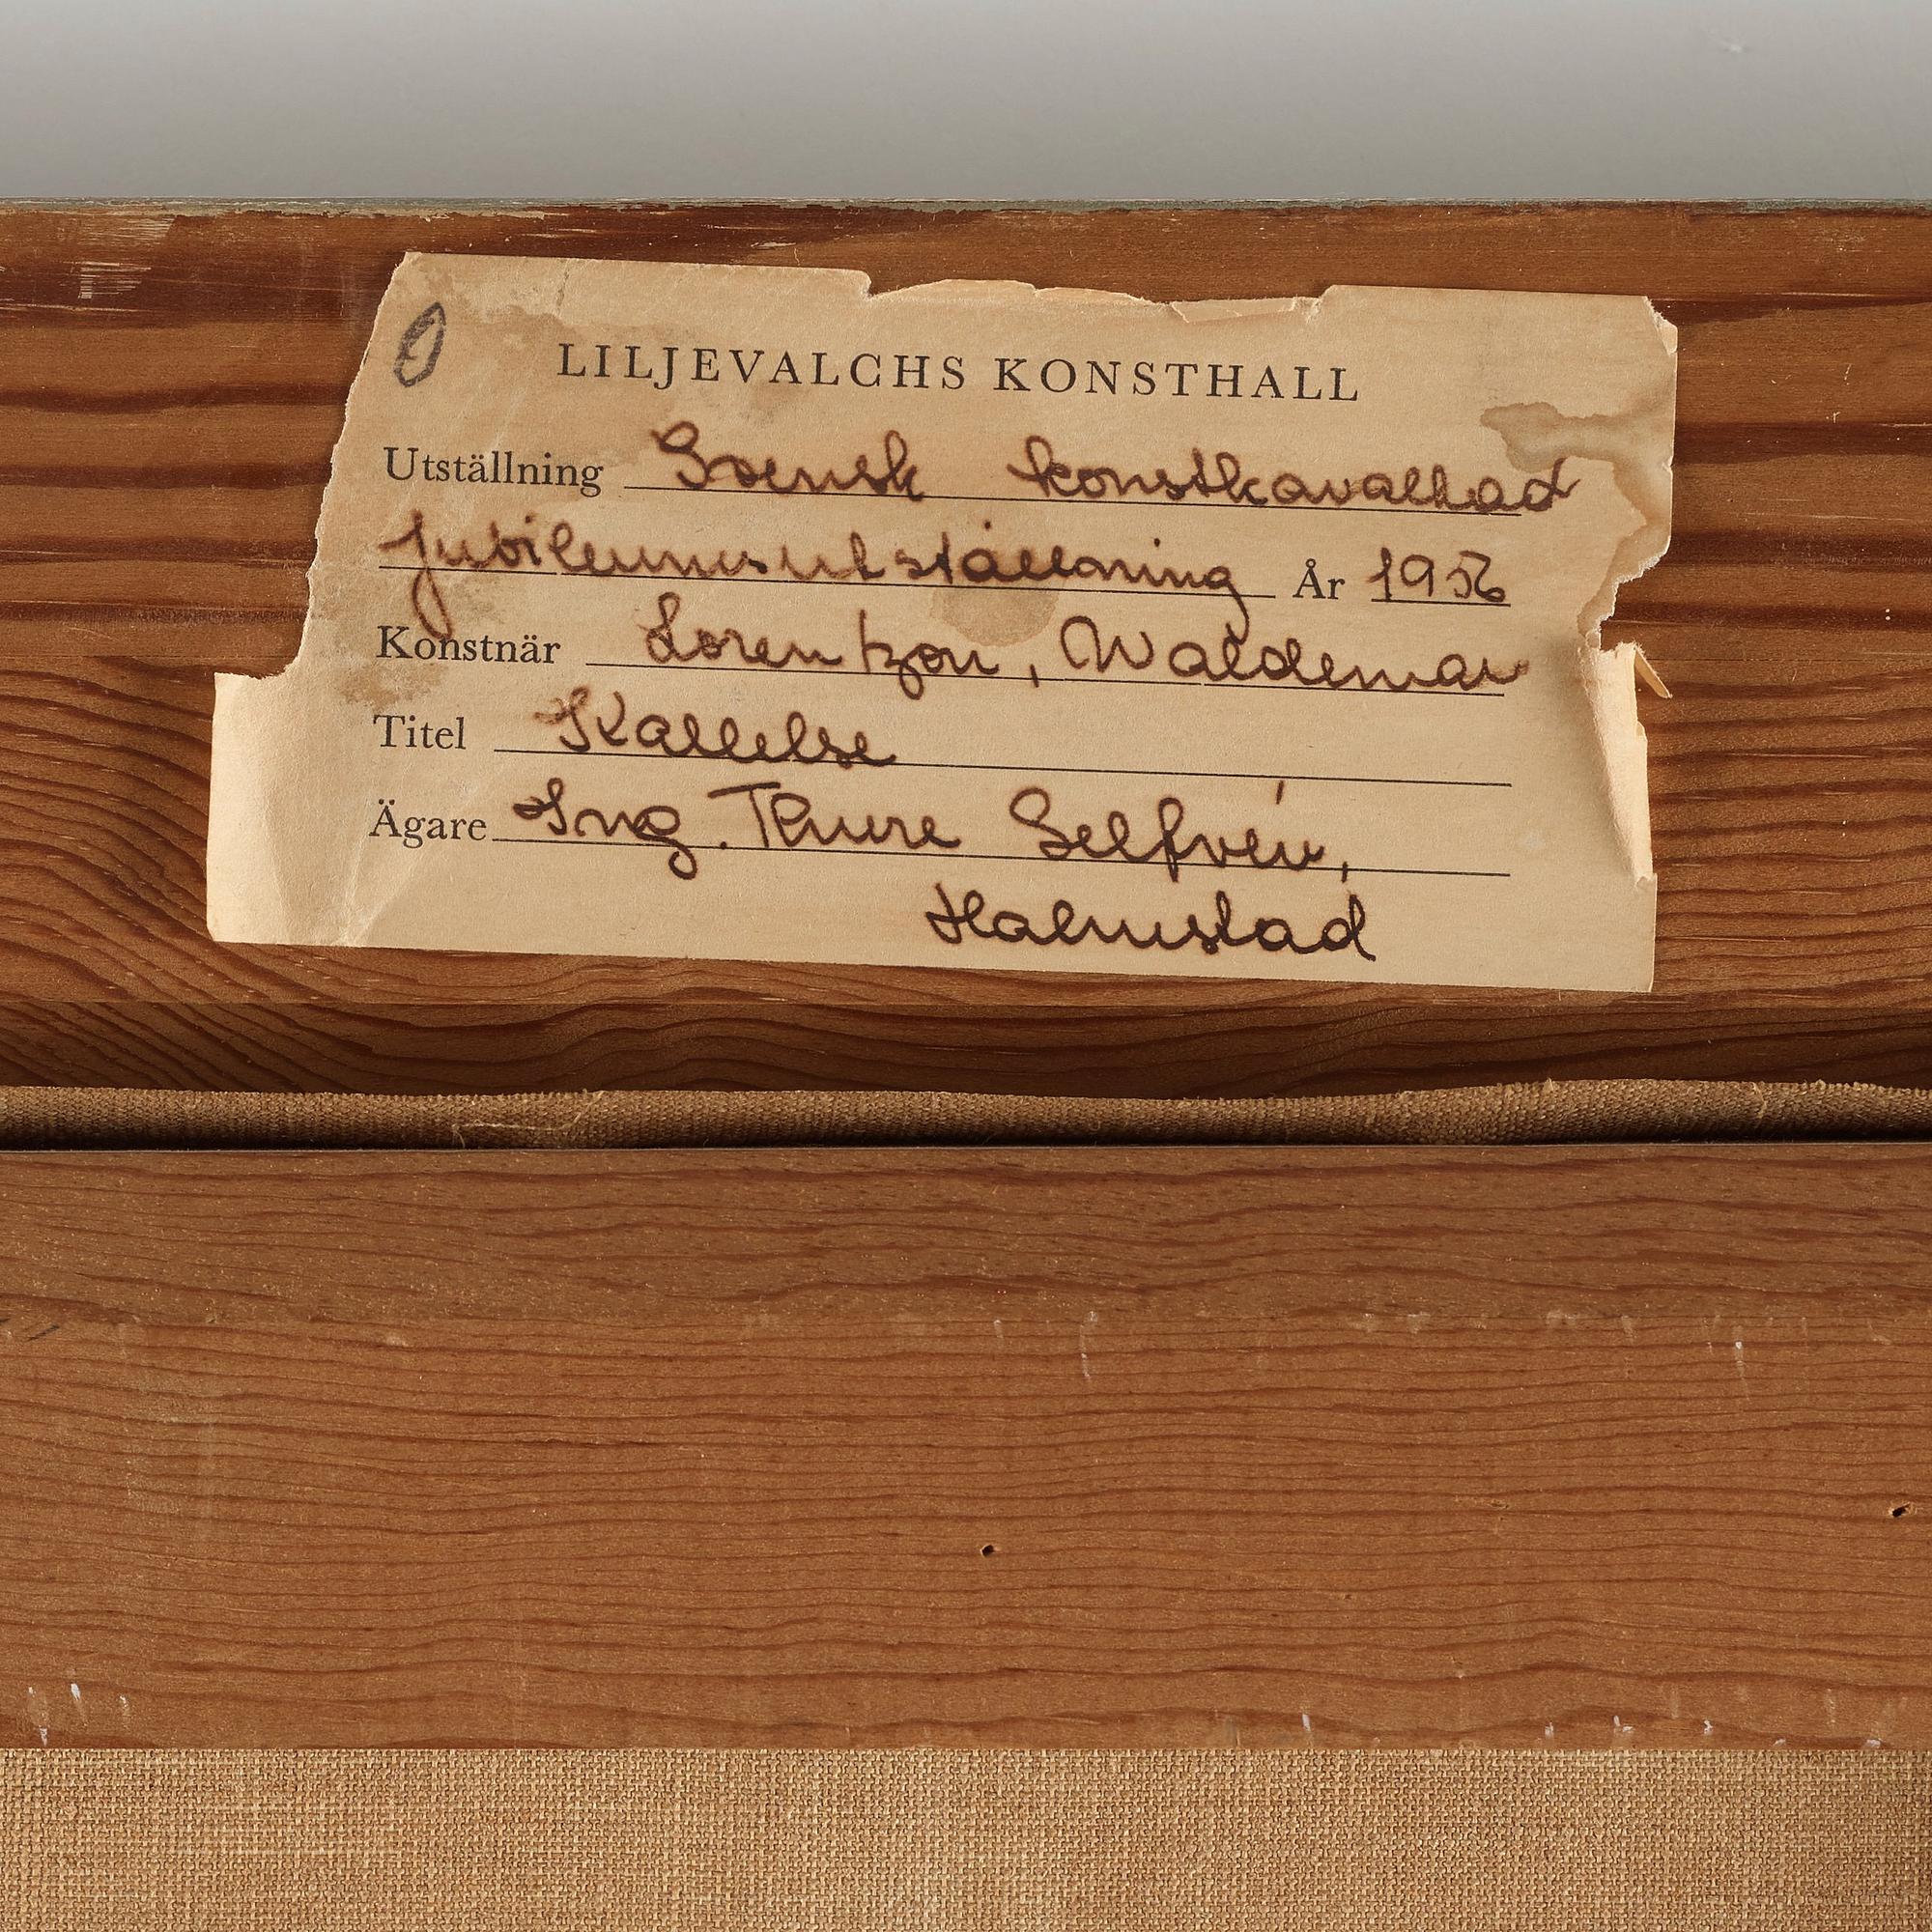 LILJEVALCHS KONSTHALL
Utställning Svensk konstkavalkad
jubileumsutställning År 1956
Konstnär Lorentzon, Waldemar
Titel Kallelse
Ägare Ing. Thure Selfvén,
Halmstad